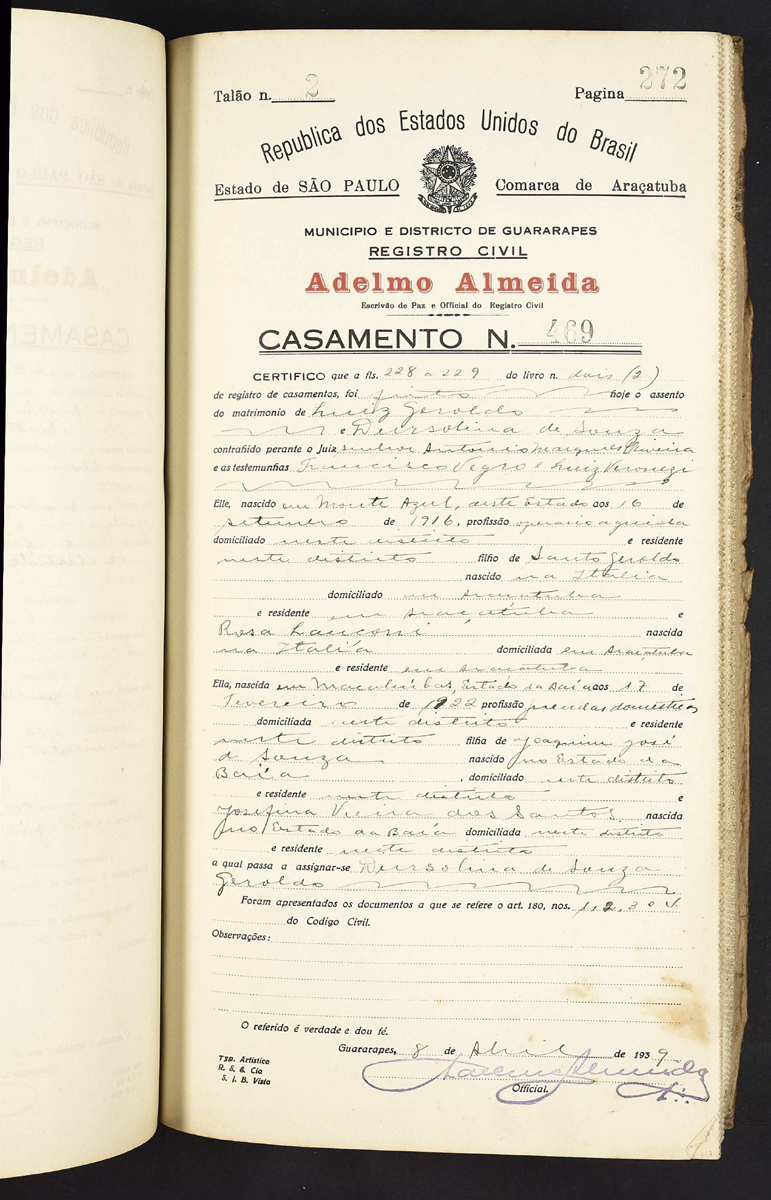 Talão n. 2 Pagina 272
Republica dos Estados Unidos do Brasil
Estado de SÃO PAULO Comarca de Araçatuba
MUNICIPIO E DISTRICTO DE GUARARAPES
REGISTRO CIVIL
Adelmo Almeida
Escrivão de Paz e Official do Registro Civil
CASAMENTO N. 469
CERTIFICO que a fls. 228 a 229 do livro n. dois (2)
de registro de casamentos, foi feito hoje o assento
do matrimonio de Luiz Geroldo
e Deursolina de Souza
contrahido perante o Juiz senhor Antonio Marques Oliveira
e as testemunhas Francisco Vegro e Luiz Veronezi
Elle, nascido em Monte Azul, deste Estado aos 16 de
setembro de 1916, profissão operario
domiciliado neste distrito e residente
neste distrito filho de Santo Geroldo
nascido na Italia
domiciliado em Araçatuba
e residente em Araçatuba e
Rosa nascida
na Italia domiciliada em Araçatuba
e residente em Araçatuba
Ella, nascida em Macahubas, Estado da Baía aos 17 de
Fevereiro de 1922 profissão prendas domesticas
domiciliada neste distrito e residente
neste distrito filha de Joaquim José
de Souza nascido no Estado da
Baía, domiciliado neste distrito
e residente neste distrito e
Josefina Vieira dos Santos nascida
no Estado da Baía domiciliada neste distrito
e residente neste distrito
a qual passa a assignar-se Deursolina de Souza
Geroldo
Foram apresentados os documentos a que se refere o art. 180, nos. 1, 2, 3 e 4
do Codigo Civil.
Observações:
O referido é verdade e dou fé.
Guararapes, 8 de Abril de 1939
Typ. Artistica
R. S. & Cia
S. J. B. Vista
Adelmo Almeida
Official.